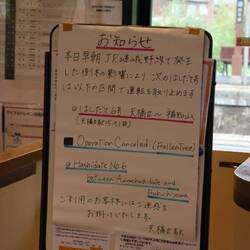 お知らせ
本日早朝 JR嵯峨野線で発生
した倒木の影響により、次のはしだて号
は以下の区間で運転を取り止めます
◎はしだて6号 天橋立〜福知山
■ Operation Canceled (FallenTree)
◎Hashidate No.6
between Amanohashidate and
Fukuchiyama
ご利用のお客様にはご迷惑を
お掛けいたします。
天橋立駅